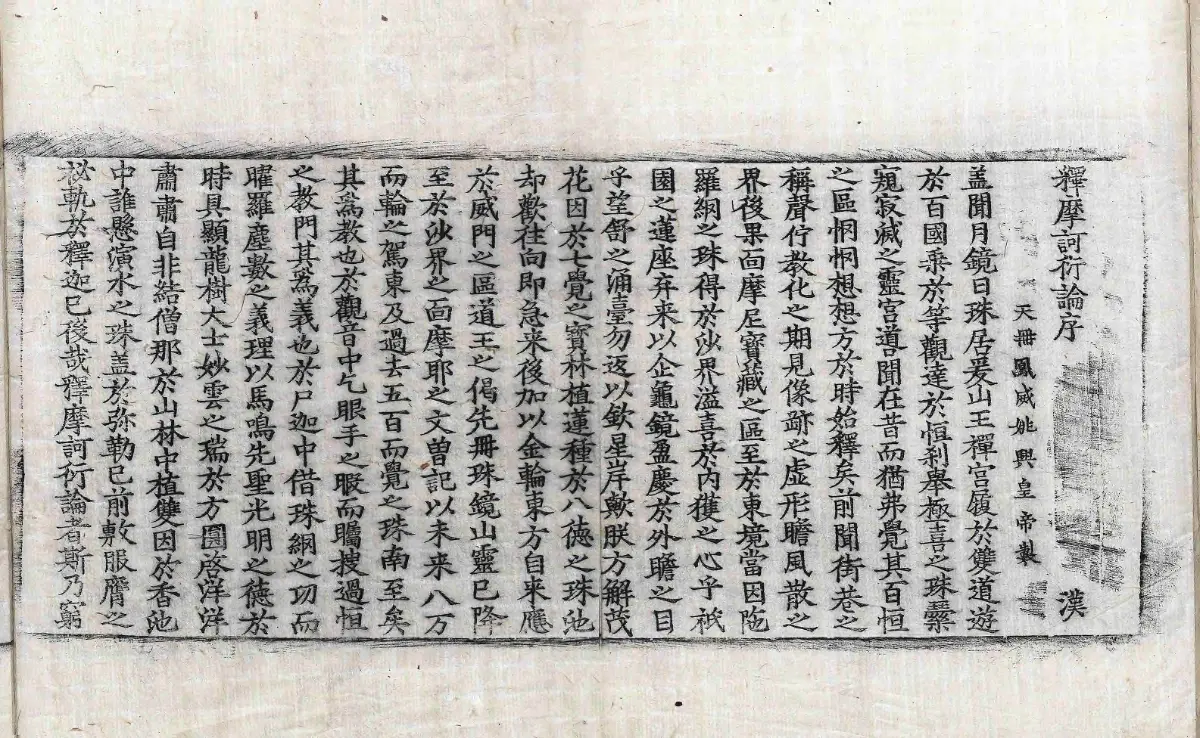 釋摩訶衍論序 漢
天冊鳳威姚興皇帝製
盖聞月鏡日珠居爰山王禪宮履於雙道遊
於百國乗於等觀達於恒利舉極喜之珠繫
窺寂滅之靈宮道聞在昔而猶弗覺其百恒
之區惘惘想想方於時始釋矣前聞街巷之
稱聲佇教化之期見像跡之虚形瞻風散之
界後果向摩尼寶藏之區至於東境當因陁
羅綱之珠得於沙界溢喜於内獲之心乎祇
園之蓮座弃来以企龜鏡盈慶於外瞻之目
乎望舒之涌臺勿返以欽星岸歟朕方解茂
花因於七覺之寶林植蓮種於八徳之珠池
却歡往向即急来後加以金輪東方自来應
於威門之區道王之偈先冊珠鏡山靈巳降
至於沙界之面摩耶之文曽記以未来八万
而輪之駕東及過去五百而覺之珠南至矣
其爲教也於觀音中乞眼手之暇而矚搜過恒
之教門其爲義也於尸迦中借珠綱之功而
曜羅塵數之義理以馬鳴先聖光明之徳於
時具顯龍樹大士妙雲之瑞於方圓啓洋洋
肅肅自非結僧那於山林中植雙因於香池
中誰懸演水之珠盖於弥勒巳前敷服膺之
祕軌於釋迦巳後哉釋摩訶衍論者斯乃窮